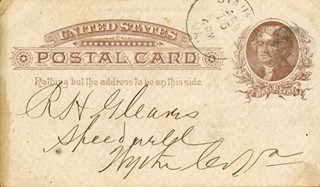 UNITED STATES
POSTAL CARD
Nothing but the address to be on this side.
R H Gleaves
Speedwell
Wythe Co Va